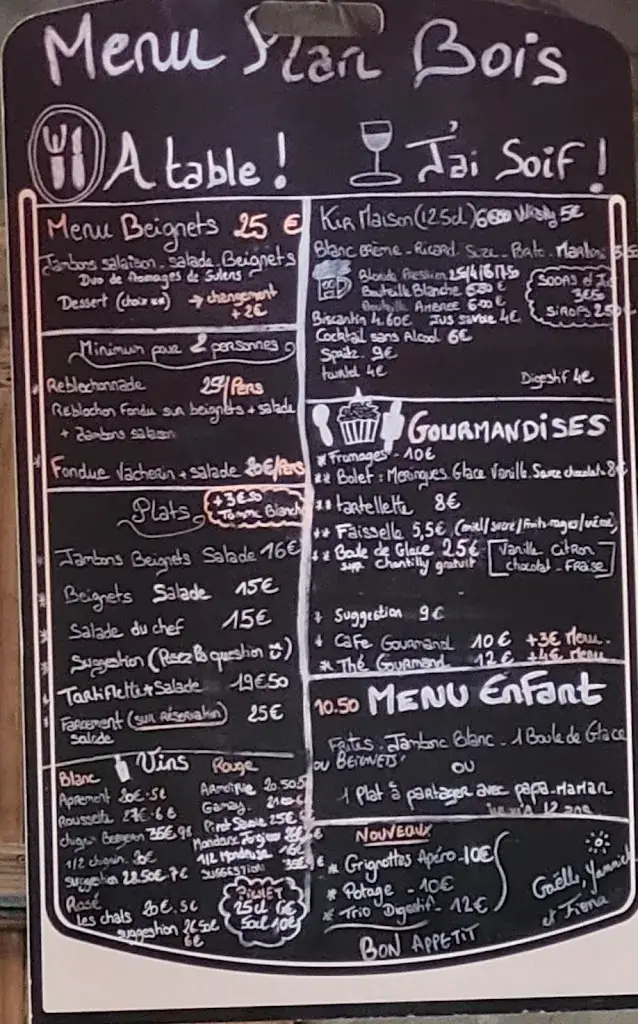 Menu Plan Bois
A table !
Menu Beignets 25 €
Jambons salaison. salade. Beignets
Duo de fromages de Sulens
Dessert (choix **) → changement
+ 2€
Minimum pour 2 personnes
Reblochonnade 25€/Pers
Reblochon Fondu sur beignets + salade
+ Jambons salaison
Fondue Vacherin + salade 20€/Pers
Plats
+3€50
Tomme Blanche
Jambons Beignets Salade 16€
Beignets Salade 15€
Salade du chef 15€
Suggestion (Posez la question)
Tartiflette + Salade 19€50
Farcement (sur réservation) 25€
salade
Vins
Blanc
Apremont 20€-5€
Roussette 27€-6€
chignin Bergeron 35€
1/2 chignin. 20€
suggestion 28.50€-7€
Rosé
les chals 20€.5€
suggestion
6€
Rouge
Gamay.
Pinot Savoie 25€
1/2 Mondeuse
SUGGESTION
PICHET
25cl 6€
50cl 10€
J'ai Soif !
Kir Maison (12.5cl) Whisky 5€
Blanc CREME - Ricard. Suze. Porto. Martini
Blonde Pression
Bouteille Blanche 6.00 €
Bouteille AMBREE 6.00 €
Biscantin 4.60€ Jus Savoie 4€
Cocktail sans Alcool 6€
Spritz 9€
4€
SODAS et
3€50
SIROPS
Digestif 4€
GOURMANDISES
* Fromages - 10€
** Bolet : Meringues Glace Vanille. Sauce chocolat. 8€
** tartellette 8€
** Faisselle 5,5€ (miel/sucre/fruits rouges/crème)
** Boule de Glace 2.5€ Vanille Citron
supp. chantilly gratuit chocolat - FRAISE
* Suggestion 9€
* Café Gourmand 10€ +3€ Menu.
** Thé Gourmand 12€ +4€ menu
10.50 MENU Enfant
Frites. Jambon Blanc. 1 Boule de Glace
ou BEIGNETS
OU
1 Plat à partager avec papa-maman
jusqu'à 12 ans
NOUVEAUX
* Grignottes Apéro - 10€
* Potage - 10€
* Trio Digestif - 12€
BON APPETIT
Gaëlle, Yannick
et Fiona